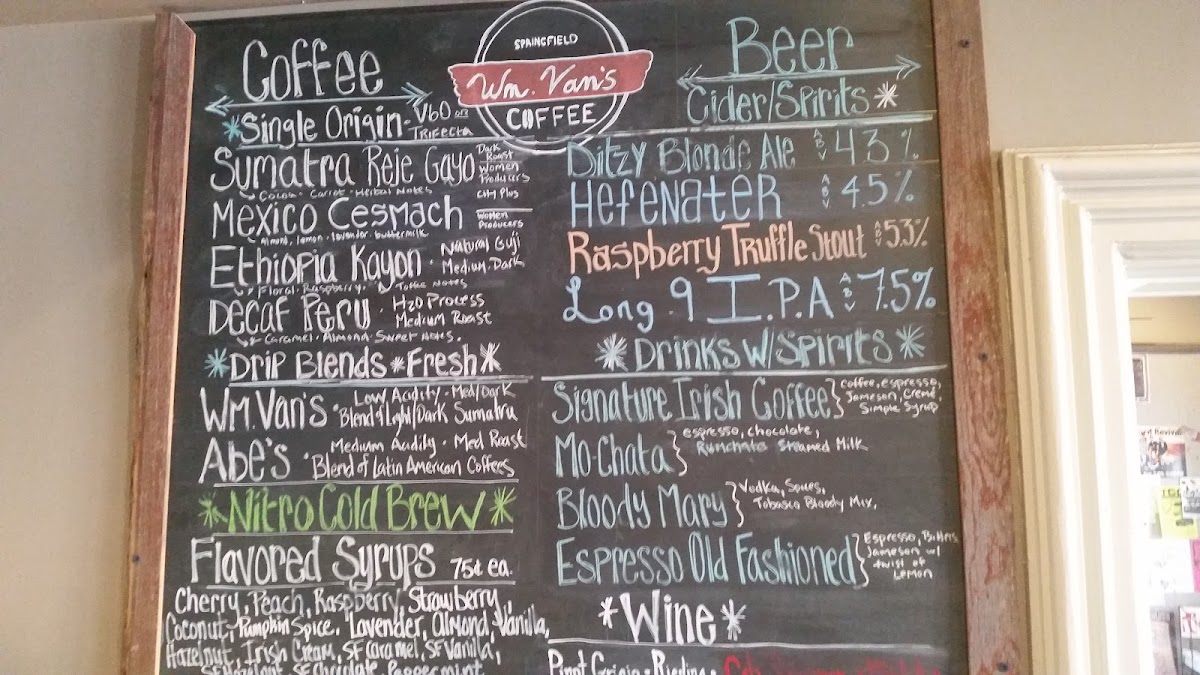 SPRINGFIELD
Wm. Van's
COFFEE
Coffee
*Single Origin - V60 or
TRIFECTA
Sumatra Reje Gayo
Dark
Roast
Women
Producers
City Plus
Cocoa · Carrot · Herbal Notes
Mexico Cesmach
Women
Producers
Almond, lemon, lavender, buttermilk
Ethiopia Kayon · Natural Guji
Medium-Dark
Floral · Raspberry · Toffee Notes
Decaf Peru · H20 Process
Medium Roast
Caramel · Almond · Sweet Notes.
*Drip Blends *Fresh*
Wm. Van's
Low Acidity · Med/Dark
Blend of Light/Dark Sumatra
Abe's
Medium Acidity · Med Roast
Blend of Latin American Coffees
*Nitro Cold Brew*
Flavored Syrups 75¢ ea.
Cherry, Peach, Raspberry, Strawberry,
Coconut, Pumpkin Spice, Lavender, Almond, Vanilla,
Hazelnut, Irish Cream, SF Caramel, SF Vanilla,
SF Hazelnut, SF Chocolate, Peppermint
Beer
Cider/Spirits*
Ditzy Blonde Ale ABV 4.3%
Hefenater ABV 4.5%
Raspberry Truffle Stout ABV 5.3%
Long 9 I.P.A ABV 7.5%
*Drinks w/Spirits*
Signature Irish Coffee} coffee, espresso,
Jameson, Creme,
Simple Syrup
Mo-Chata} espresso, chocolate,
Rumchata Steamed Milk
Bloody Mary} Vodka,
Tobasco Bloody Mix.
Espresso Old Fashioned} Espresso, Bitters
Jameson w/
twist of
Lemon
*Wine*
Pinot Grigio · Riesling ·